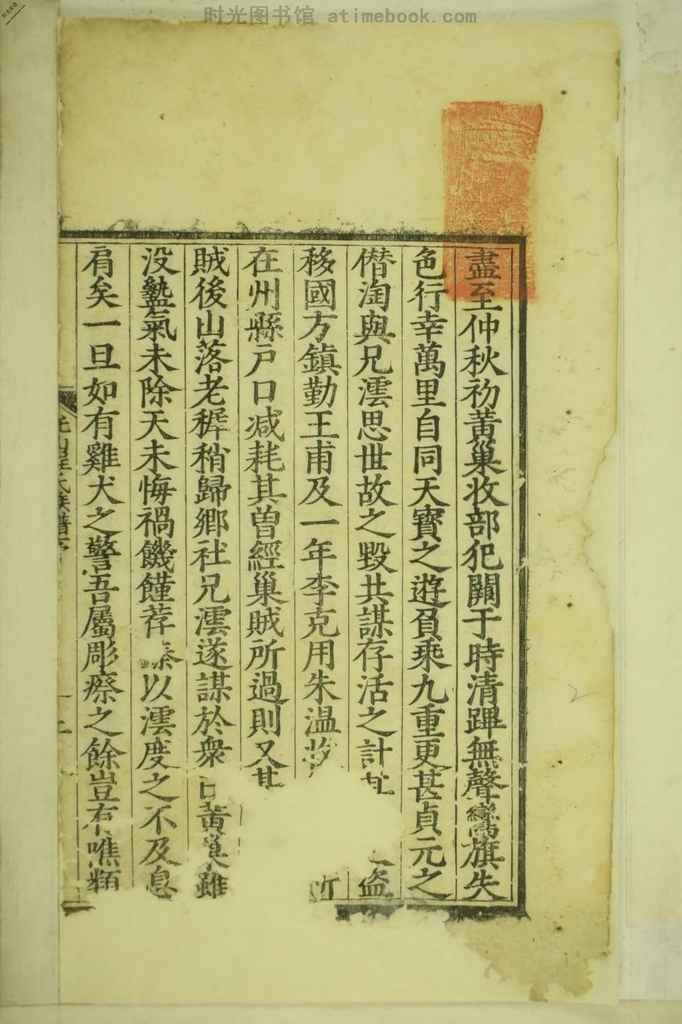 时光图书馆 atimebook.com
盡至仲秋初黃巢收部犯闕于時清蹕無聲鸞旗失
色行幸萬里自同天寶之遊負乘九重更甚貞元之
僭淘與兄澐思世故之毀共謀存活之計 盜
移國方鎮勤王甫及一年李克用朱温 所
在州縣戶口减耗其曽經巢賊所過則又甚
賊後山落老穉稍歸鄉社兄澐遂謀於衆曰黃巢雖
没蠥氣未除天未悔禍饑饉荐臻以澐度之不及息
肩矣一旦如有雞犬之警吾屬彫瘵之餘豈有噍類
氏族譜